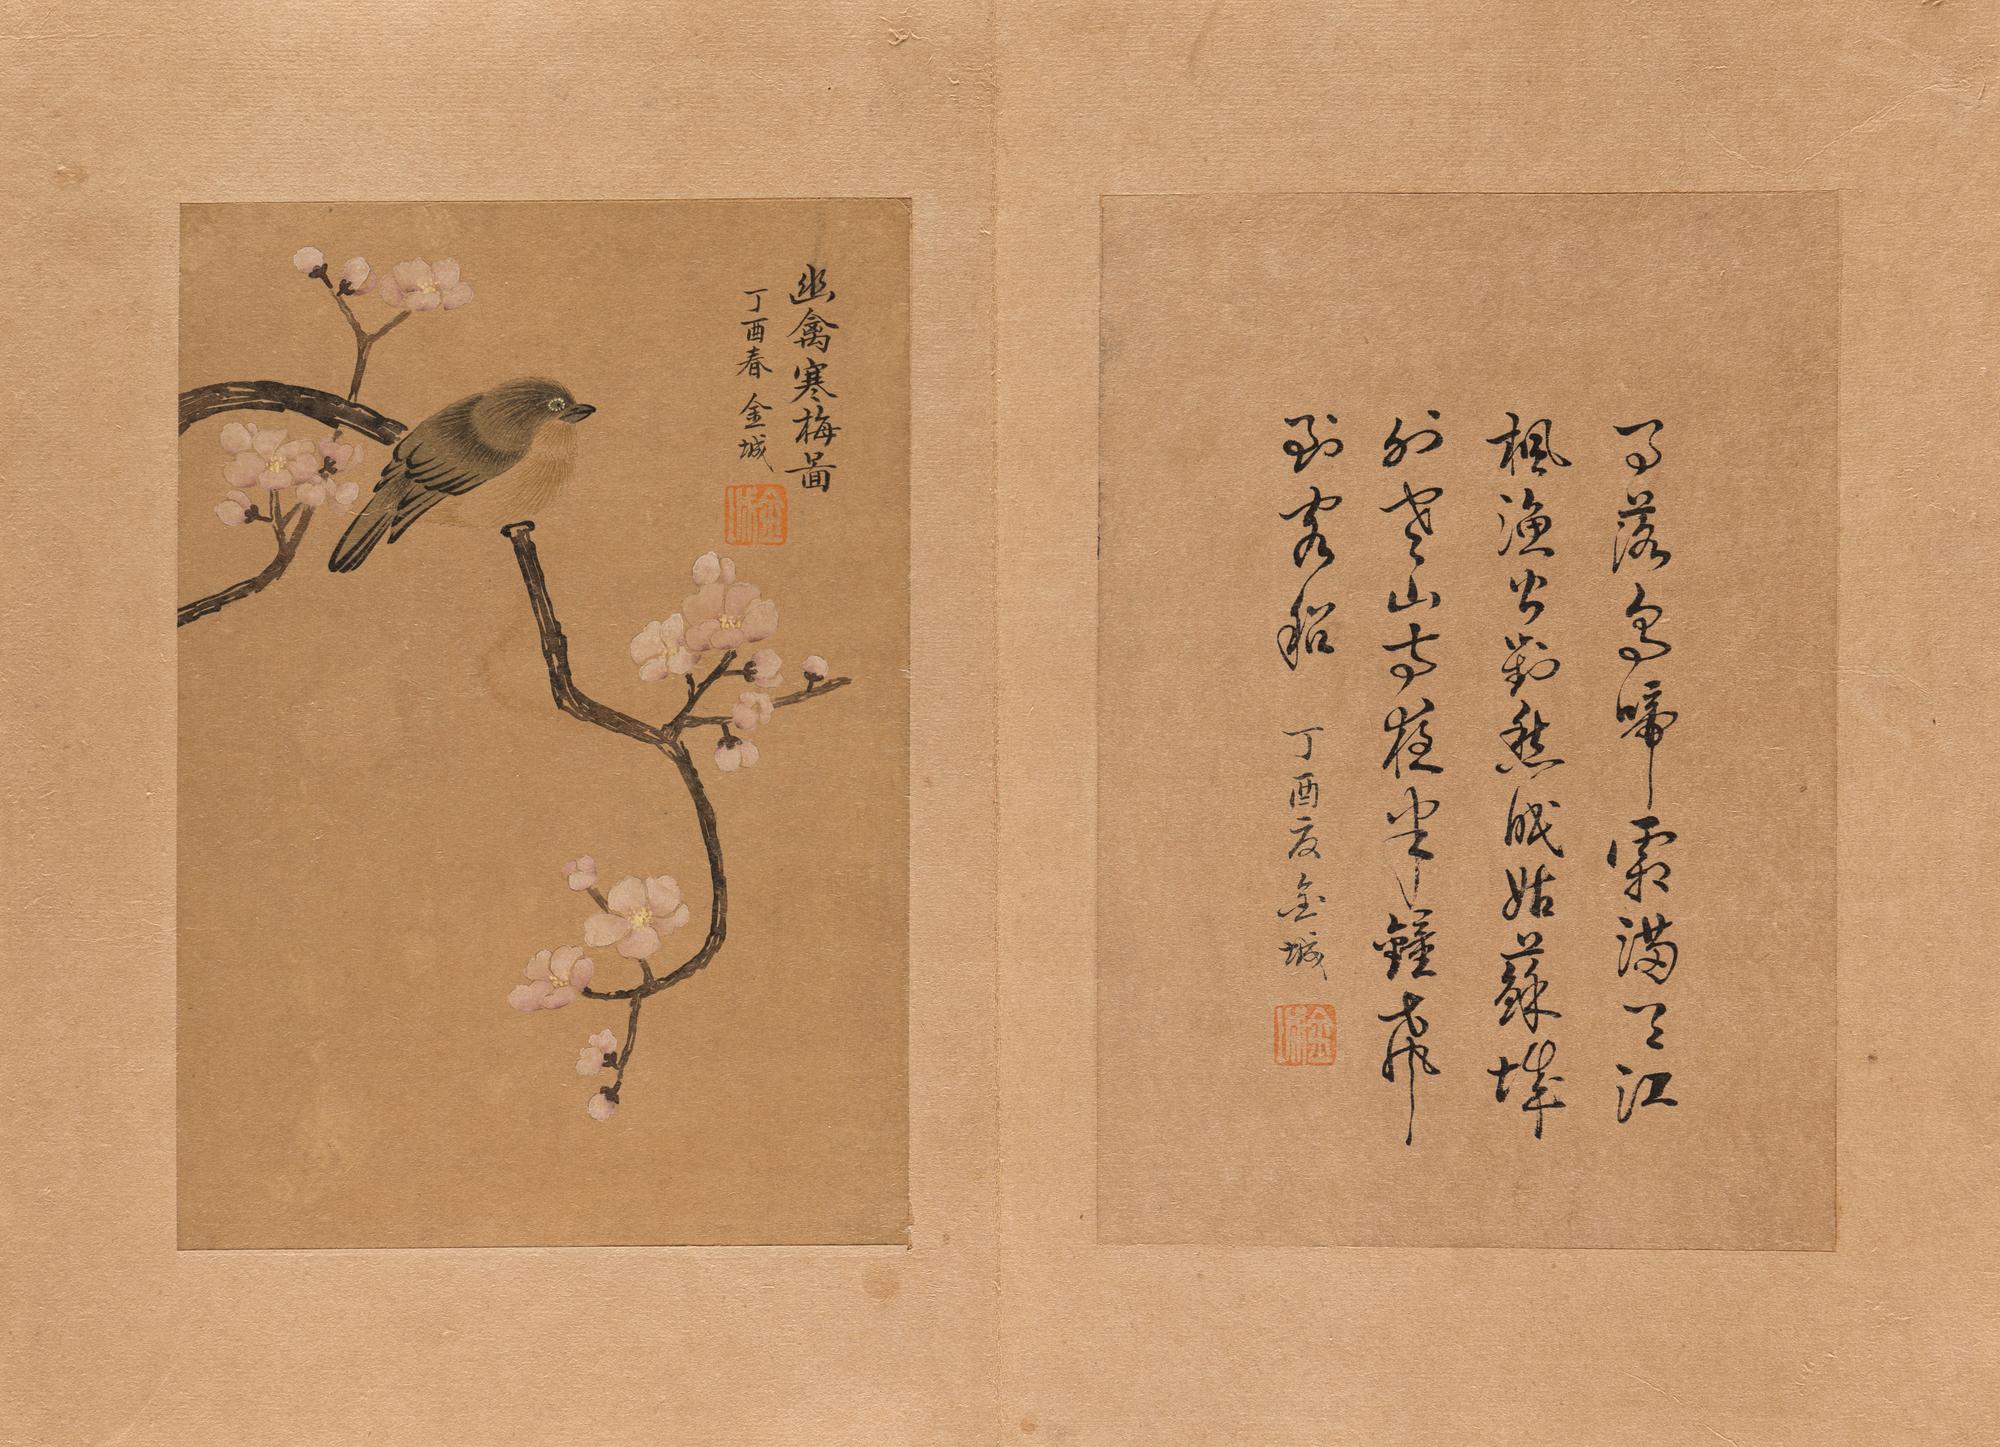 月落烏啼霜滿天江
楓漁火對愁眠姑蘇城
外寒山寺夜半鐘聲
到客船 丁酉夏 金城
金城
幽禽寒梅圖
丁酉春 金城
金城